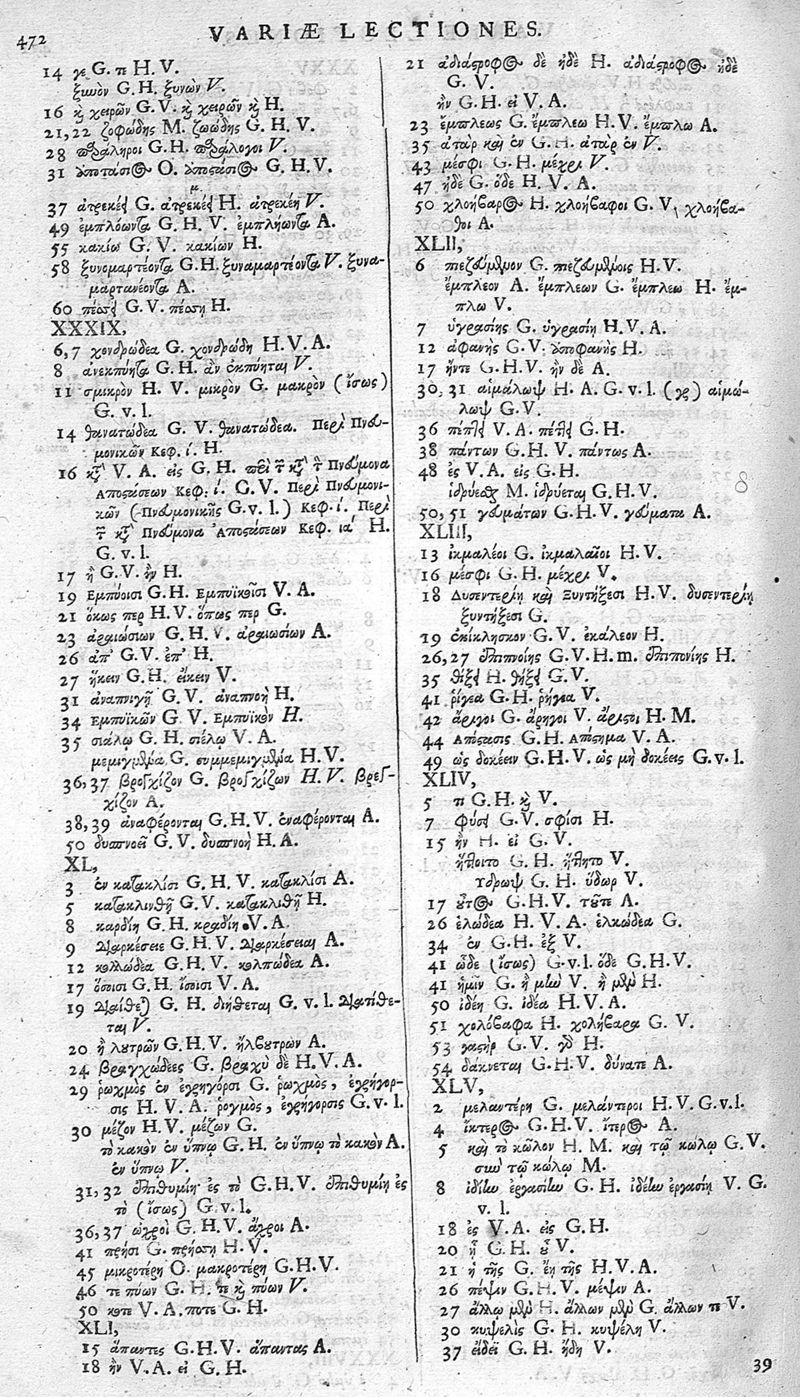 472
VARIÆ LECTIONES.
14 γε G. τε H. V.
ξυνὸν G. H. ξυνὼν V.
16 καὶ χειρῶν G. V. καὶ χειρῶν καὶ H.
21, 22 ζοφώδης M. ζωώδης G. H. V.
28 παράληροι G. H. παράλογοι V.
31 ὑποτάσιος O. ὑποστάσιος G. H. V.
37 ἀτρεκέϊ G. ἀτρεκέϊ H. ἀτρεκέη V.
49 ἐμπλόωντα G. H. V. ἐμπλήωντα A.
55 κακίω G. V. κακίων H.
58 ξυνομαρτέοντα G. H. ξυναμαρτέοντα V. ξυνα-
μαρτανέοντα A.
60 πέσῃ G. V. πέσῃ H.
XXXIX,
6, 7 χονδρώδεα G. χονδρώδη H. V. A.
8 ἀνεκπύητα G. H. ἂν ἐκπύηται V.
11 σμικρὸν H. V. μικρὸν G. μακρὸν (ἴσως)
G. v. l.
14 θανατώδεα G. V. θανατώδεα. Περὶ Πνευ-
μονικῶν Κεφ. ί. H.
16 κατ' V. A. εἰς G. H. περὶ τῶν κατὰ τὸν Πνεύμονα
Αποστάσεων Κεφ. ί. G. V. Περὶ Πνευμονι-
κῶν (Πνευμονικῆς G. v. l.) Κεφ. ί. Περὶ
τῶν κατὰ Πνεύμονα Ἀποστάσεων Κεφ. ια'. H.
G. v. l.
17 ἢ G. V. ἢν H.
19 Εμπύοισι G. H. Εμπυϊκοῖσι V. A.
21 ὅκως περ H. V. ὅπως περ G.
23 ἀραιώσιων G. H. V. ἀραιωσίων A.
26 ἀπ' G. V. ἐπ' H.
27 ἥκειν G. H. εἴκειν V.
31 ἀναπνιγῇ G. V. ἀναπνοῇ H.
34 Εμπυϊκῶν G. V. Εμπυϊκὸν H.
35 σιάλῳ G. H. σιέλῳ V. A.
μεμιγμένα G. συμμεμιγμένα H. V.
36, 37 βρογχίζον G. βρογχίζων H. V. βρεγ-
χίζον A.
38, 39 ἀναφέρονται G. H. V. ἐναφέρονται A.
50 δυσπνοεῖ G. V. δυσπνοὴ H. A.
XL,
3 ἐν κατακλίσι G. H. V. κατακλίσι A.
5 κατακλινθῇ G. V. κατακλιθῇ H.
8 καρδίη G. H. κραδίη V. A.
9 διαρκέσειε G. H. V. διαρκέσειαι A.
12 κολλώδεα G. H. V. κολπώδεα A.
17 ὅσοισι G. H. ἴσοισι V. A.
19 διαίθεται G. H. διήθεται G. v. l. διατίθε-
ται V.
20 ἢ λυτρῶν G. H. V. ἤλυτρων A.
24 βραγχώδεες G. βραχὺ δὲ H. V. A.
29 ῥωχμὸς ἐν ἐγρηγόρσι G. ῥωχμὸς, ἐγρήγορ-
σις H. V. A. ῥογμὸς, ἐγρήγορσις G. v. l.
30 μέζον H. V. μέζων G.
τὸ κακὸν ἐν ὕπνῳ G. H. ἐν ὕπνῳ τὸ κακὸν A.
ἐν ὕπνῳ V.
31, 32 ἐπιθυμίη ἐς τὸ G. H. V. ἐπιθυμίη ἐς
τὸ (ἴσως) G. v. l.
36, 37 ὠχροὶ G. H. V. ἄχροι A.
41 πρήσι G. πρήσῃ H. V.
45 μικροτέρη O. μακροτέρη G. H. V.
46 τε πύων G. H. τε καὶ πύων V.
50 κοτε V. A. ποτε G. H.
XLI,
15 ἅπαντες G. H. V. ἅπαντας A.
18 ἢν V. A. εἰ G. H.
21 ἀδιάστροφος δὲ ἠδὲ H. ἀδιάστροφος ἠδὲ
G. V.
ἢν G. H. εἰ V. A.
23 ἔμπλεως G. ἔμπλεω H. V. ἔμπλω A.
35 ἀτὰρ καὶ ἐν G. H. ἀτὰρ ἐν V.
43 μέσφι G. H. μέχρι V.
47 ἠδὲ G. ὅδε H. V. A.
50 χλοήβαρος H. χλοήβαφοι G. V. χλοήβα-
θοι A.
XLII,
6 πιεζούμενον G. πιεζουμένοις H. V.
ἔμπλεον A. ἔμπλεων G. ἔμπλεω H. ἔμ-
πλω V.
7 ὑγρασίης G. ὑγρασίη H. V. A.
12 ἀφανὴς G. V. ὑποφανὴς H.
17 ἥντε G. H. V. ἢν δὲ A.
30, 31 αἱμάλωψ H. A. G. v. l. (γρ) αἱμώ-
λωψ G. V.
36 πέπλῃ V. A. πέτλῃ G. H.
38 πάντων G. H. V. πάντως A.
48 ἐς V. A. εἰς G. H.
ἱδρύεσθαι M. ἱδρύεται G. H. V.
50, 51 γευμάτων G. H. V. γεύματα A.
XLIII,
13 ἰκμαλέοι G. ἰκμαλαῖοι H. V.
16 μέσφι G. H. μέχρι V.
18 Δυσεντερίη καὶ Ξυντήξεσι H. V. δυσεντερίῃ
ξυντήξεσι G.
19 ἐπίκλησκον G. V. ἐκάλεον H.
26, 27 ἐπιπνοίης G. V. H. m. ἐπιπονίης H.
35 θίξῃ H. θήξῃ G. V.
41 ῥίγεα G. H. ῥήγεα V.
42 ἄραγοι G. ἄρηγοι V. ἄραιοι H. M.
44 Απόστασις G. H. Απόστημα V. A.
49 ὡς δοκέειν G. H. V. ὡς μὴ δοκέεις G. v. l.
XLIV,
5 τι G. H. καὶ V.
7 φύσῃ G. V. σφίσι H.
15 ἢν H. εἰ G. V.
ἥποιτο G. H. ἥπητο V.
Υδρωψ G. H. ὕδωρ V.
17 οὗτος G. H. V. τοῦτε A.
26 ἑλώδεα H. V. A. ἑλκώδεα G.
34 ἐν G. H. ἐξ V.
41 ὧδε (ἴσως) G. v. l. ὅδε G. H. V.
41 ἡμῖν G. ἢ μὴν V. ἢ μὲν H.
50 ἰδέη G. ἰδέα H. V. A.
51 χολόβαφα H. χολήβαφα G. V.
53 γαστὴρ G. V. γὰρ H.
54 δάκνεται G. H. V. δύναται A.
XLV,
2 μελαντέρη G. μελάντεροι H. V. G. v. l.
4 ἴκτερος G. H. V. ἴτερος A.
5 καὶ τὸ κῶλον H. M. καὶ τῷ κώλῳ G. V.
σὺν τῷ κώλῳ M.
8 ἰδίην ἐργασίην G. H. ἰδέην ἐργασίη V. G.
v. l.
18 ἐς V. A. εἰς G. H.
20 ἢ G. H. οὗ V.
21 ἢ τῆς G. ἔη τῆς H. V. A.
26 πέψιν G. H. V. μέψιν A.
27 ἄλλῳ μὲν H. ἄλλων μὲν G. ἄλλων τε V.
30 κυψελὶς G. H. κυψέλη V.
37 εἰδεῖ G. H. ἤδη V.
39